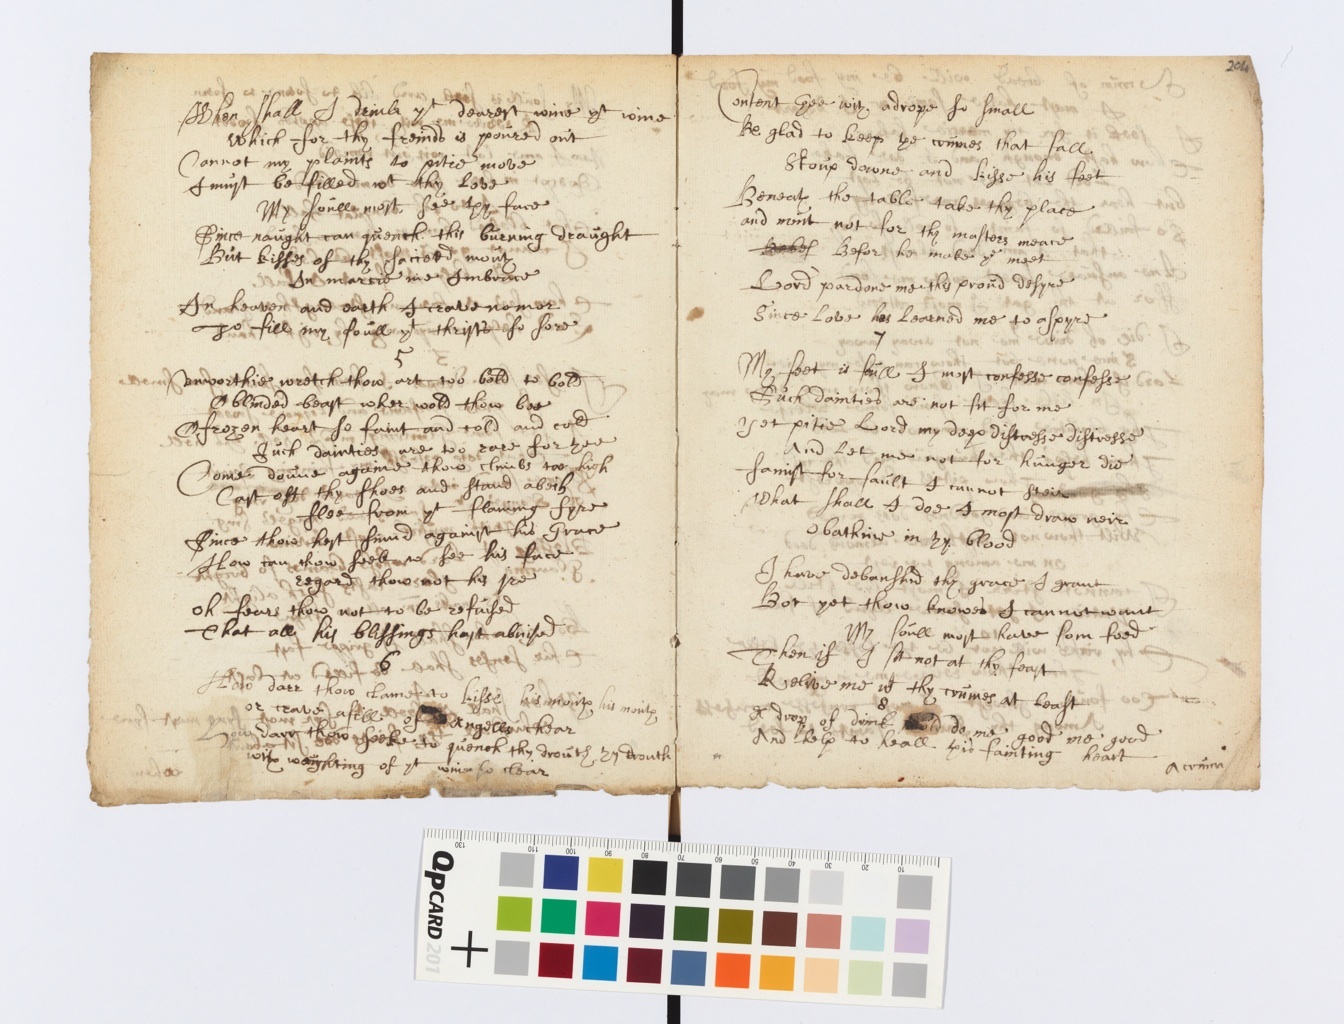 When shall I drink yt dearest wine yt wine
Which for thy freinds is poured out
Cannot my plaints to pitie move
I must be filled wt thy Love
My soull most see thy face
Since naught can quench this burning draught
But kisses of thy sacred mouth
In marcie me Imbrace
In heaven and earth I crave no mor
To fill my soull yt thrists so sore
5
Unworthie wretch thow art too bold to bold
O blinded beast wher wold thow bee
O frozen heart so faint and cold and cold
Such dainties are too rare for thee
Come doune againe thow climbs too high
Cast off thy shoes and stand abeih
flee from yt flaming fyre
Since thow hest sinnd against his Grace
How can thow seek to see his face
regard thow not his Ire
oh fears thow not to be refuised
That all his blissings hast abuised
6
How darr thow clame to kisse his mouth his mouth
or crave a fill of Angells chear
How darr thow seeke to quench thy drouth thy drouth
with weighting of yt wine so clear
204
Content thee with a drope so small
Be glad to keep the crumes that fall
Stoup downe and kisse his feet
Beneath the table take thy place
and mint not for thy masters meace
Befor he make ye meet
Lord pardone me this proud desyre
Since Love hes Learned me to aspyre
7
My feet is full I most confesse confesse
Such dainties are not fit for me
Yet pitie Lord my deep distresse distresse
And Let me not for hunger die
famist for fault I cannot steir
What shall I doe I most draw neir
O bathine in thy blood
I have debanshd thy grace I grant
Bot yet thow knowes I cannot want
My soull most have som food
Then if I sit not at thy feast
Releive me wt thy crumes at Least
8
A drop of drink wold do me good me good
And help to heall this fainting heart
A crume